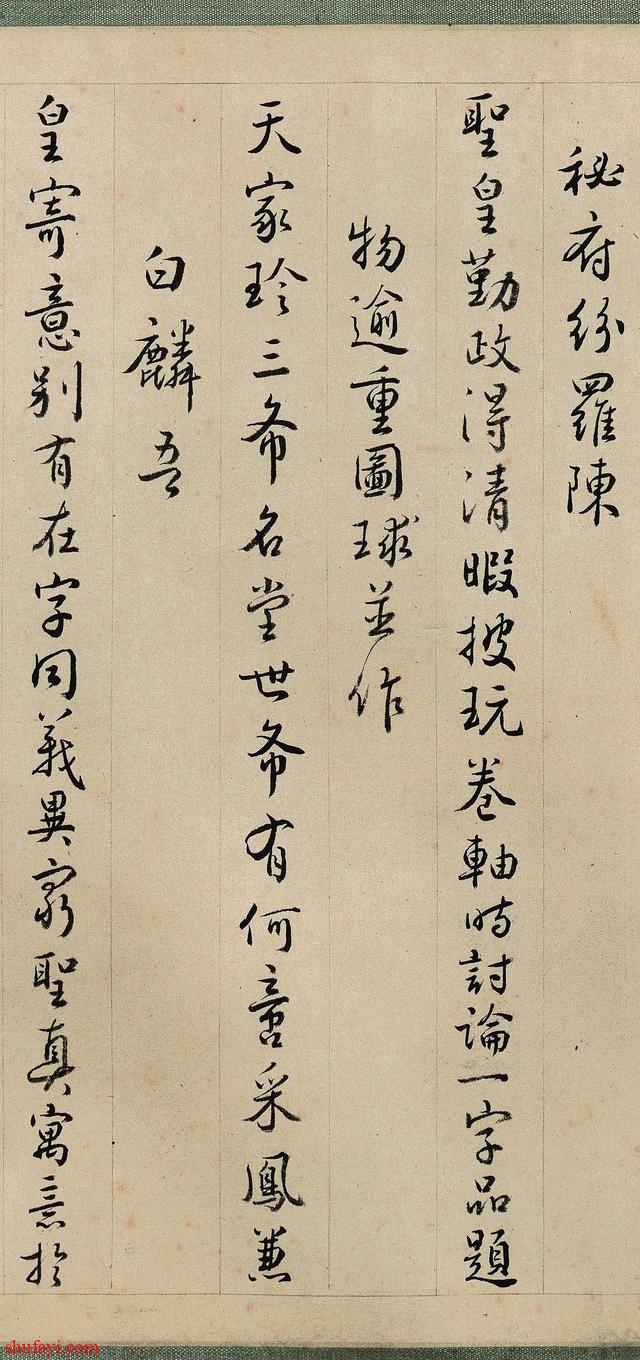 秘府紛羅陳
聖皇勤政得清暇披玩卷軸時討論一字品題
物逾重圖球並作
天家珍三希名堂世希有何啻采鳳兼
白麟吾
皇寄意别有在字同義異聖真寓意於
shufayi.com